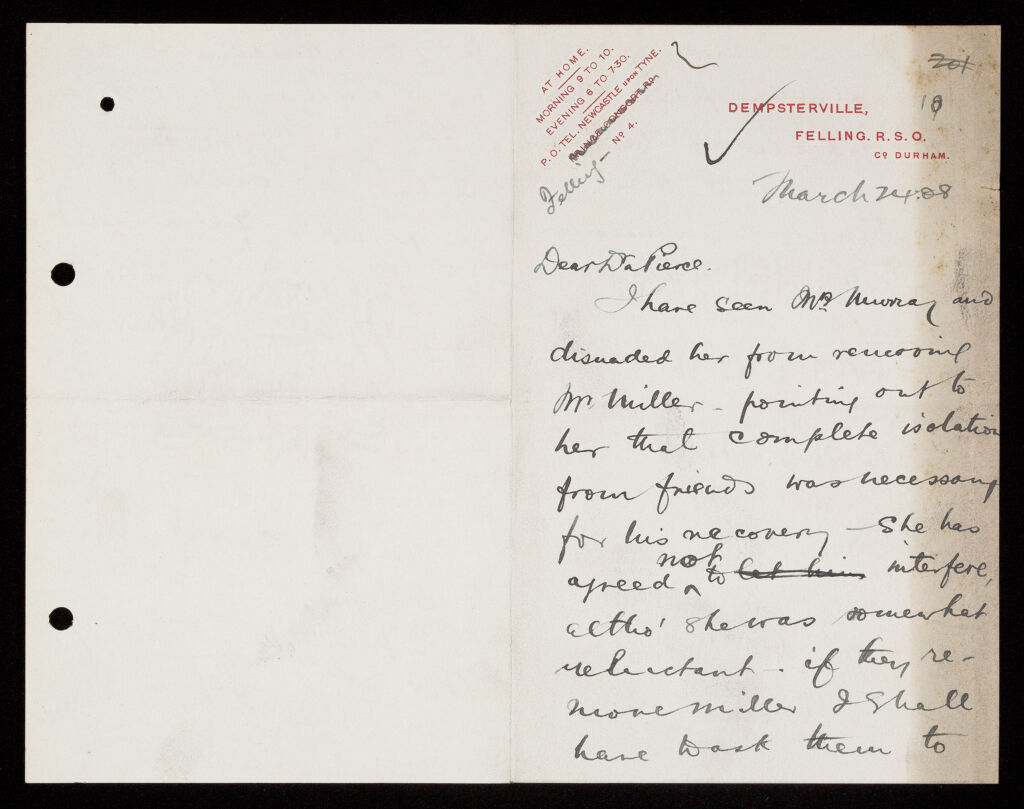 AT HOME.
MORNING 9 TO 10.
EVENING 6 TO 7·30.
P.O. TEL. NEWCASTLE UPON TYNE.
Nº 4.
Felling
DEMPSTERVILLE,
FELLING. R.S.O.
Cº DURHAM.
201
19
March 24.08
Dear Dr Pierce.
I have seen Mrs Murray and
disuaded her from removing
Mr Miller - pointing out to
her that complete isolation
from friends was necessary
for his recovery - She has
not
agreed to let him interfere,
altho' she was somewhat
reluctant - if they re-
move Miller I shall
have to ask them to